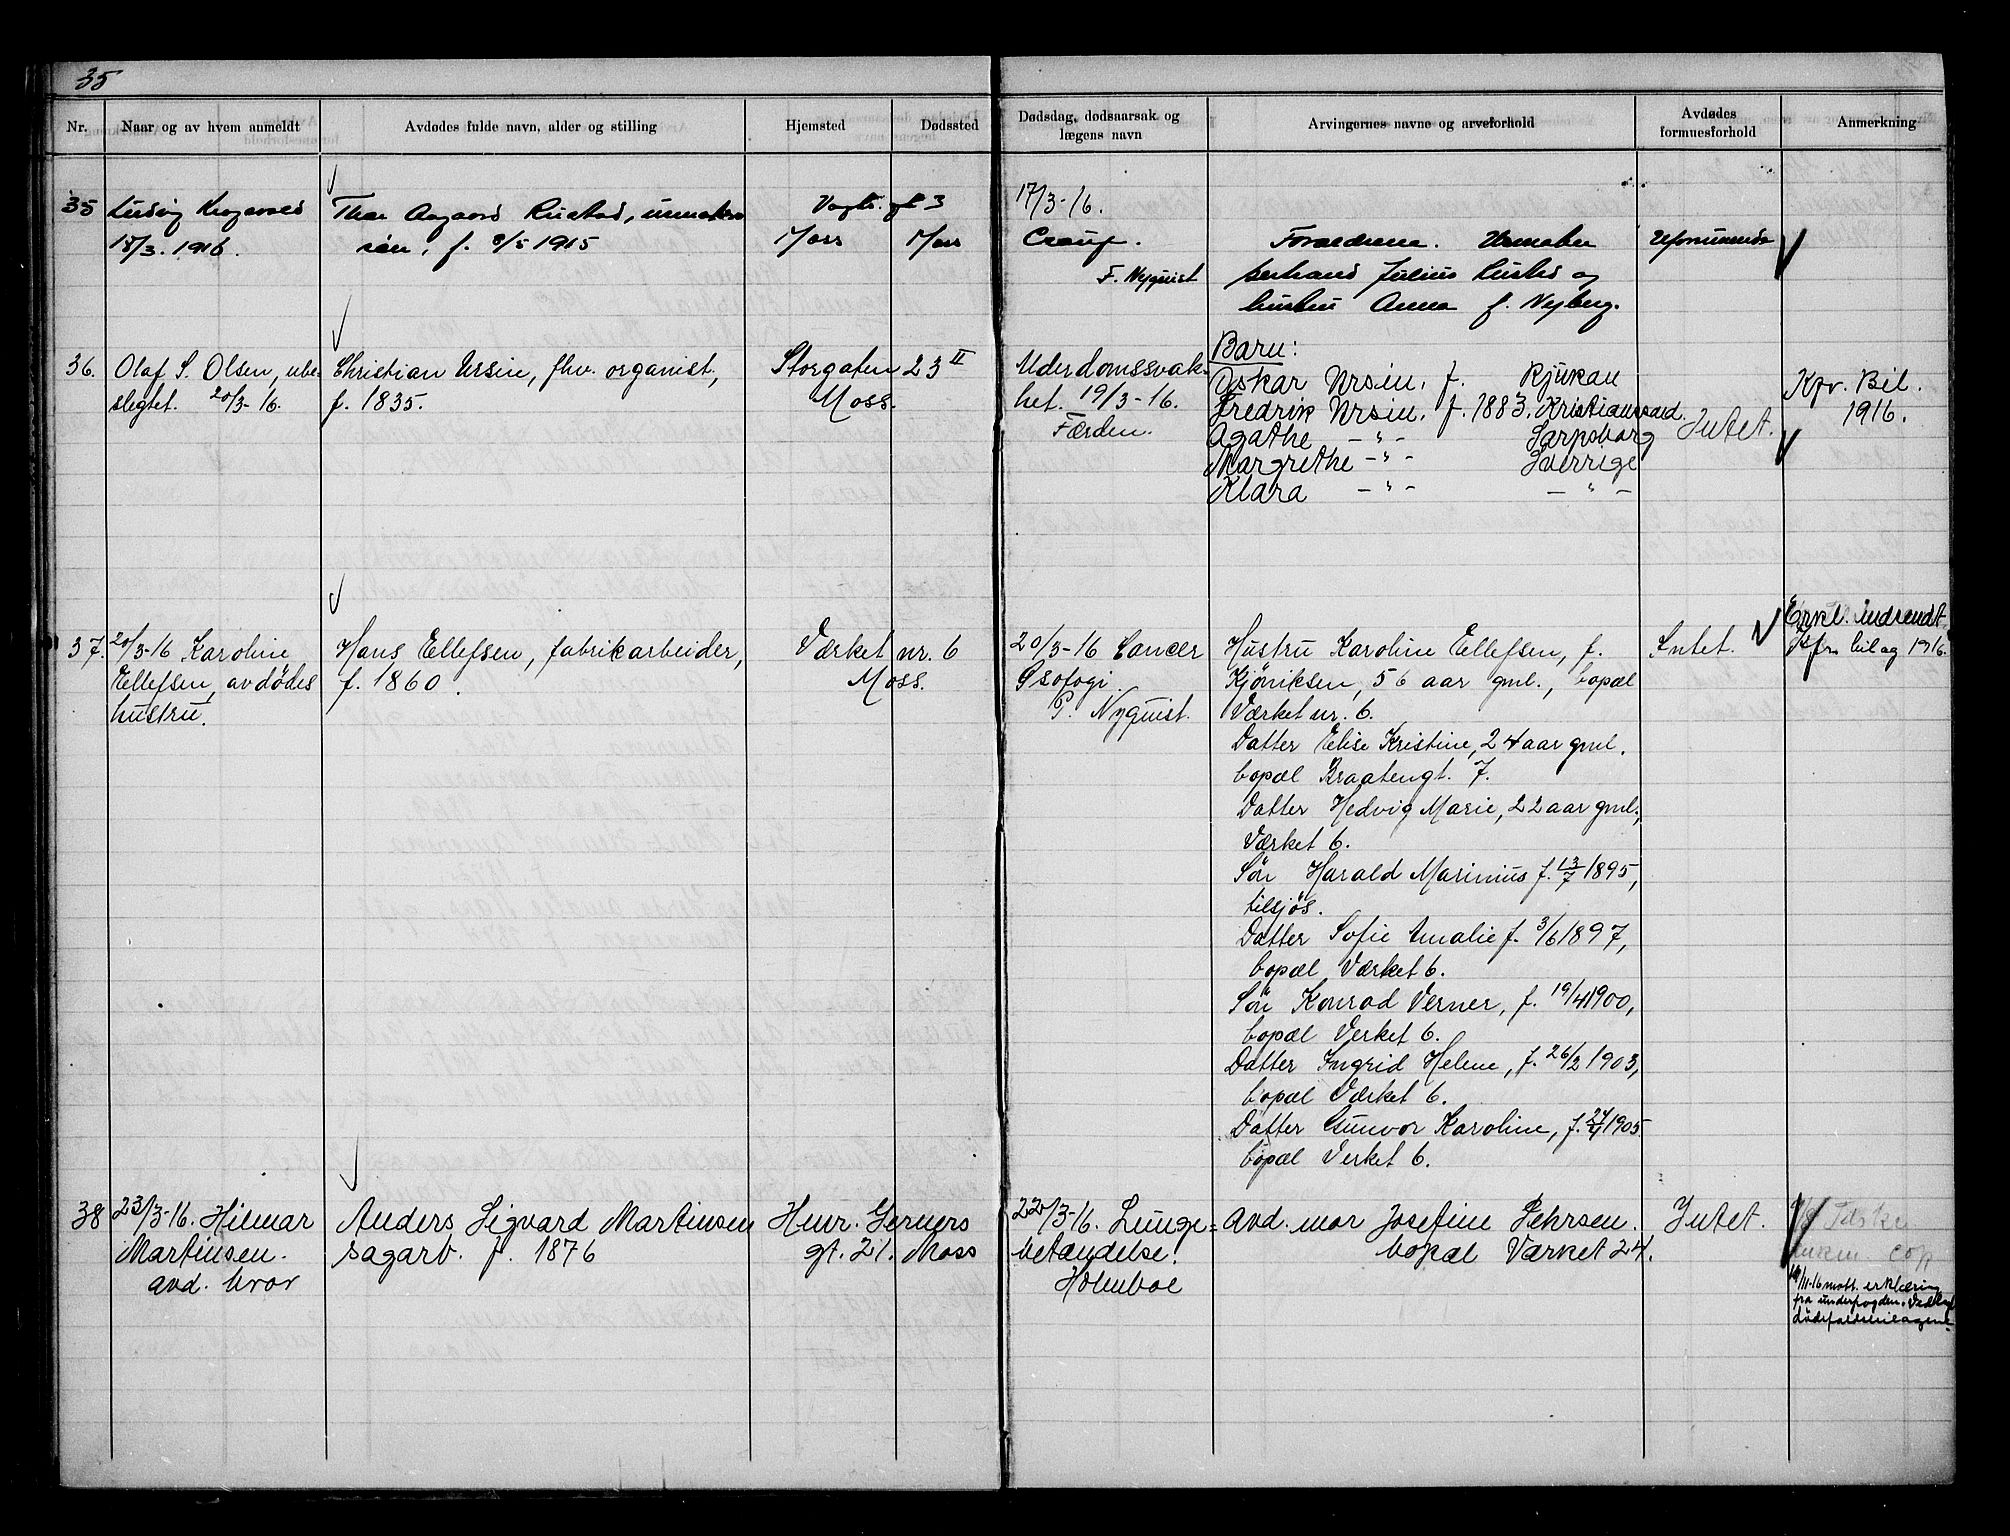 35
Nr.
Naar og av hvem anmeldt
Avdødes fulde navn, alder og stilling
Hjemsted
Dødssted
Dødsdag, dødsaarsak og
lægens navn
Arvingernes navne og arveforhold
Avdødes
formuesforhold
Anmerkning
35
Ludvig
/3. 1916.
Thor Aagaard Rustad,
søn, f. 8/5 1915
Vogts. gt 3
Moss
Moss
17/3-16.
Croup.
F. Nyquist
Forældrene.
Julius og
hustru Anna f. Nyberg.
Uformuende
36.
Olaf S. Olsen, ube-
slegtet. 20/3-16.
Christian Ursin, fhv. organist,
f. 1835.
Storgaten 23 II
Moss.
Alderdomssvak-
het. 19/3-16.
Færden.
Barn:
Oskar Ursin. f. Rjukan
Fredrik Ursin. f. 1883. Kristianssand.
Agathe -"- Sarpsborg
Margrethe -"- Sverrige
Klara -"- -"-
Intet.
Kpr. Bil.
1916.
37.
20/3-16 Karoline
Ellefsen, avdødes
hustru.
Hans Ellefsen, fabrikarbeider,
f. 1860.
Værket nr. 6
Moss.
20/3-16 Cancer
P. Nyquist.
Hustru Karoline Ellefsen, f.
Kjöniksen, 56 aar gml., bopæl
Værket nr. 6.
Datter Elise Kristine, 24 aar gml.
bopæl Braatengt. 7.
Datter Hedvig Marie, 22 aar gml.,
Værket 6.
Sön Harald Marinius f. 13/7 1895,
tilsjös.
Datter Sofie Amalie f. 3/6 1897,
bopæl Værket 6.
Sön Konrad Verner, f. 19/4 1900,
bopæl Verket 6.
Datter Ingrid Helene, f. 26/2 1903,
bopæl Værket 6.
Datter Gunvor Karoline, f. 24/4 1905
bopæl Verket 6.
Intet.
Erkl. indsendt
bilag 1916.
38
23/3-16. Hilmar
Martinsen.
avd. bror
Anders Sigvard Martinsen
sagarb. f. 1876
Henr. Gerners
gt. 21. Moss
22/3-16. Lunge-
betændelse.
Holmboe
Avd. mor Josefine Pehrsen.
bopæl Værket 24.
Intet.
/11-16 mott. erklæring
fra underfogden.